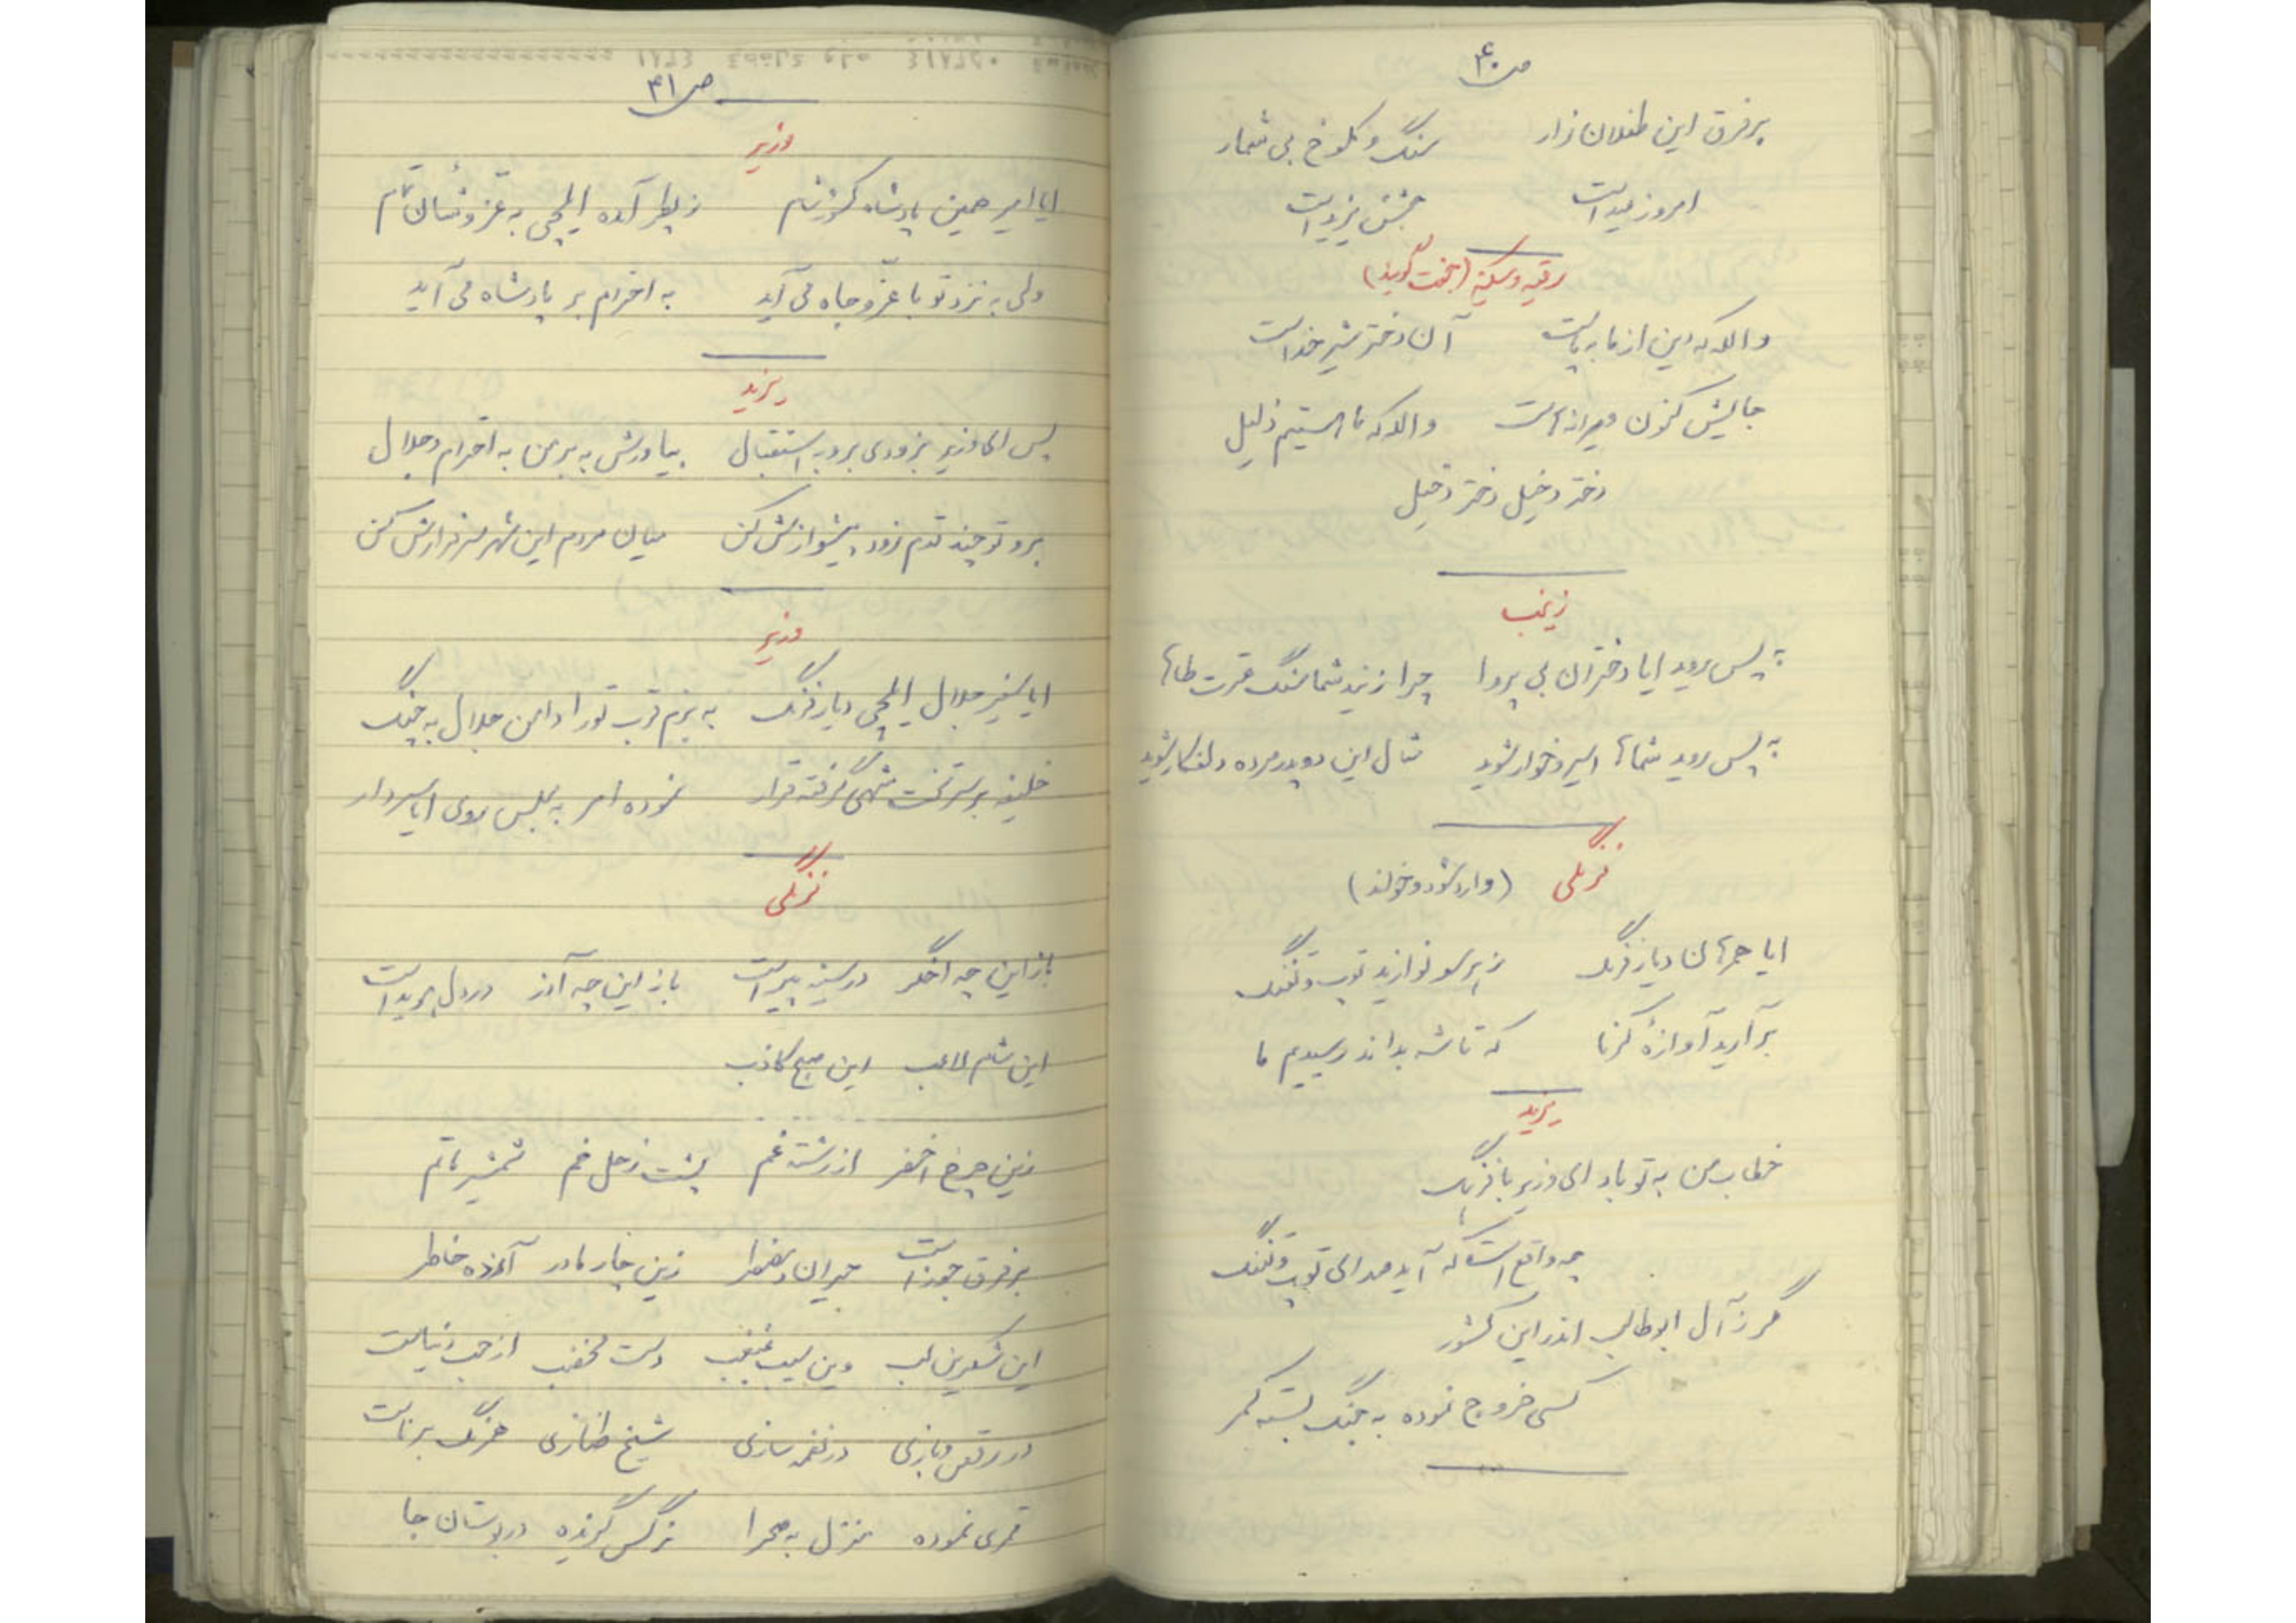 ص۴۰
بر فرق این طفلان زار سنگ و کلوخ بی شمار
امروز عید است جشن یزید است
رقیه و سکینه (بخت گوید)
والله که دین از ما به پاست آن دختر شیر خداست
جایش کنون ویرانه است والله که ما هستیم ذلیل
دختر دخیل دختر دخیل
زینب
به پس روید ایا دختران بی پروا چرا زنید شما سنگ عترت طاها
به پس روید شماها اسیر و خوار شوید مثال این دو پدر مرده دلفکار شوید
فرنگی (وارد شود و خواند)
ایا همرهان دیار فرنگ ز هر سو نوازید توپ و تفنگ
برآرید آوازهٔ کرنا که تا شه بداند رسیدیم ما
یزید
خطاب من به تو باد ای وزیر با فرهنگ
چه واقع است که آید صدای توپ و تفنگ
مگر ز آل ابوطالب اندر این کشور
کسی خروج نموده به جنگ بسته کمر
ص۴۱
وزیر
ایا امیر همین پادشاه کشور شام ز پطر آمده ایلچی به عز و شأن تمام
ولی به نزد تو با عزّ و جاه می آید به احترام بر پادشاه می آید
یزید
پس ای وزیر بزودی برو به استقبال بیاورش به بر من به احترام و جلال
برو تو چند قدم زود پیشوازش کن میان مردم این شهر سرفرازش کن
وزیر
ایا سفیر جلال ایلچی دیار فرنگ به بزم قرب تو را دامن جلال به چنگ
خلیفه بر سر تخت شهی گرفته قرار نموده امر به مجلس روی ایا سردار
فرنگی
باز این چه اخگر در سینه پیداست باز این چه آذر در دل هویداست
این شام لاعب این صبح کاذب
زین چرخ اخضر از رشته غم پشت زحل خم شمشیر ماتم
بر فرق جوزاست حیران و مضطر زین چار مادر آزرده خاطر
این شکرین لب وین سیب غبغب دست مخضب از حب دنیاست
در رقص و بازی در نغمه سازی شیخ حجازی هم رنگ برناست
قمری نموده منزل به صحرا نرگس گزیده در بوستان جا